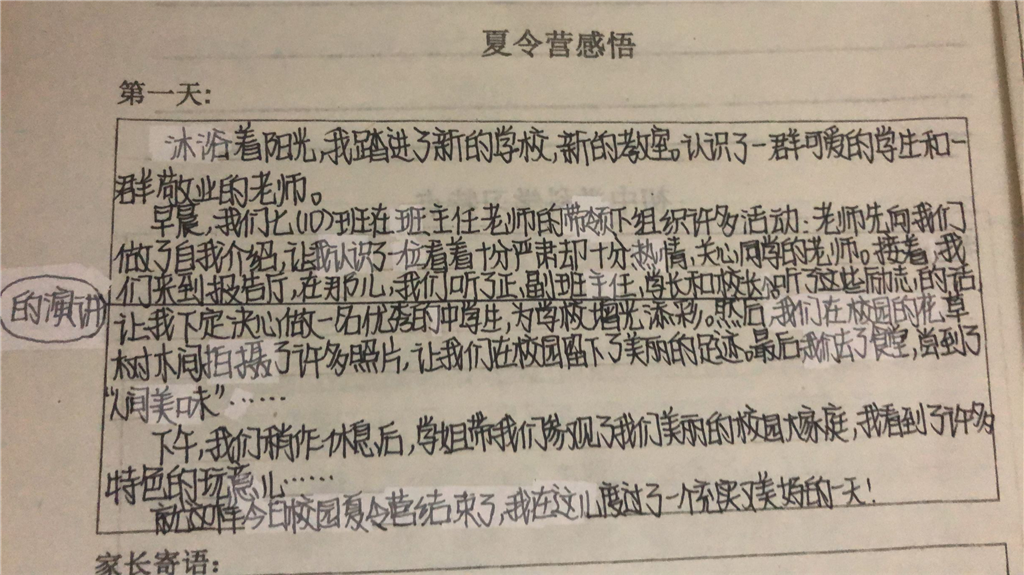 夏令营感悟
第一天:
沐浴着阳光,我踏进了新的学校,新的教室。认识了一群可爱的学生和一
群敬业的老师。
早晨,我们七(10)班在班主任老师的带领下组织许多活动:老师先向我们
做了自我介绍,让我认识了一位看着十分严肃却十分热情,关心同学的老师。接着,我
们来到报告厅,在那儿,我们听了正,副班主任,学长和校长听了这些励志的话
的演讲
让我下定决心做一名优秀的中学生,为学校增光添彩。然后,我们在校园的花草
树木间拍摄了许多照片,让我们在校园留下了美丽的足迹。最后我们去了食堂,尝到了
“人间美味”……
下午,我们稍作休息后,学姐带我们参观了我们美丽的校园大家庭,我看到了许多
特色的玩意儿……
就这样今日校园夏令营结束了,我在这儿度过了一个充实又美好的一天!
家长寄语: